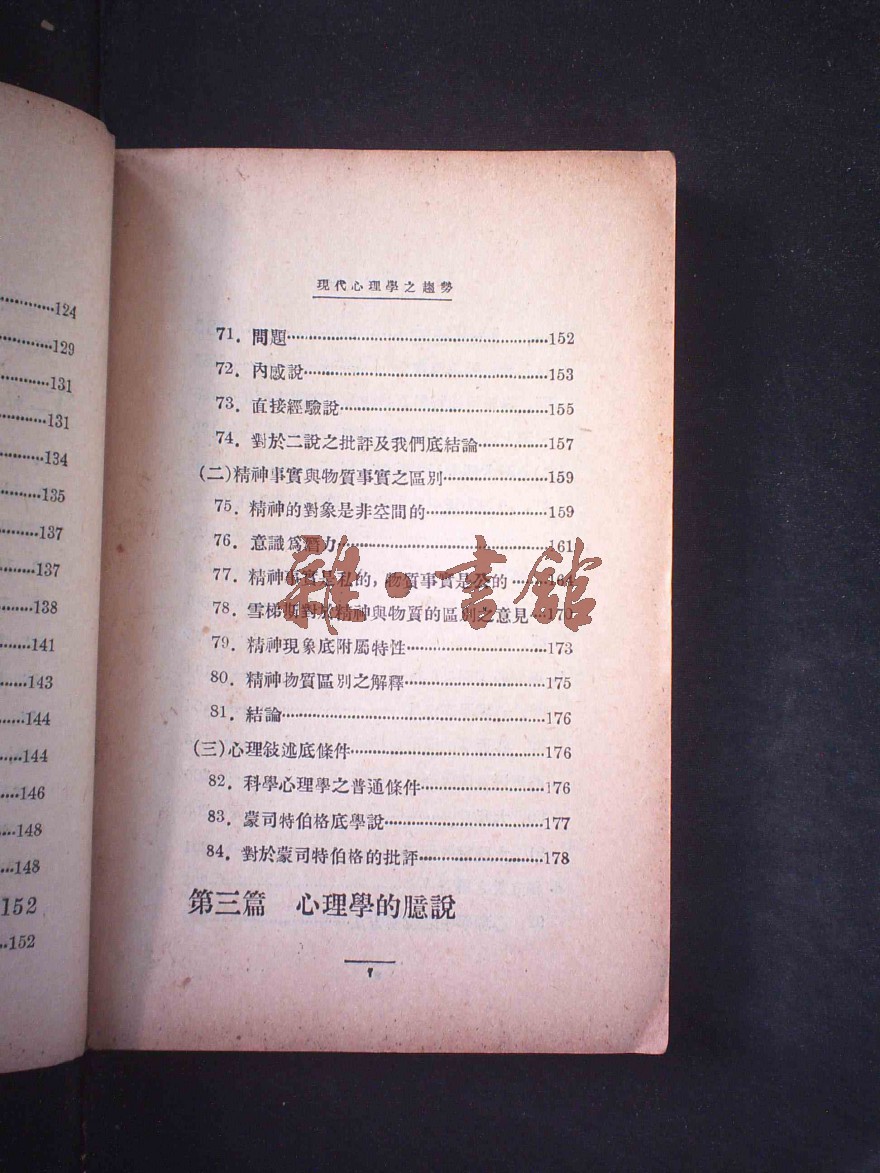 …124
…129
…131
…131
…134
…135
…137
…137
…138
…141
…143
…144
…144
…146
…148
…148
152
…152
現代心理學之趨勢
71. 問題…152
72. 內感說…153
73. 直接經驗說…155
74. 對於二說之批評及我們底結論…157
(二)精神事實與物質事實之區別…159
75. 精神的對象是非空間的…159
76. 意識爲潛力…161
77. 精神事實是私的，物質事實是公的…164
78. 雪梯斯對於精神與物質的區別之意見…170
79. 精神現象底附屬特性…173
80. 精神物質區別之解釋…175
81. 結論…176
(三)心理敍述底條件…176
82. 科學心理學之普通條件…176
83. 蒙司特伯格底學說…177
84. 對於蒙司特伯格的批評…178
第三篇 心理學的臆說
雜·書館